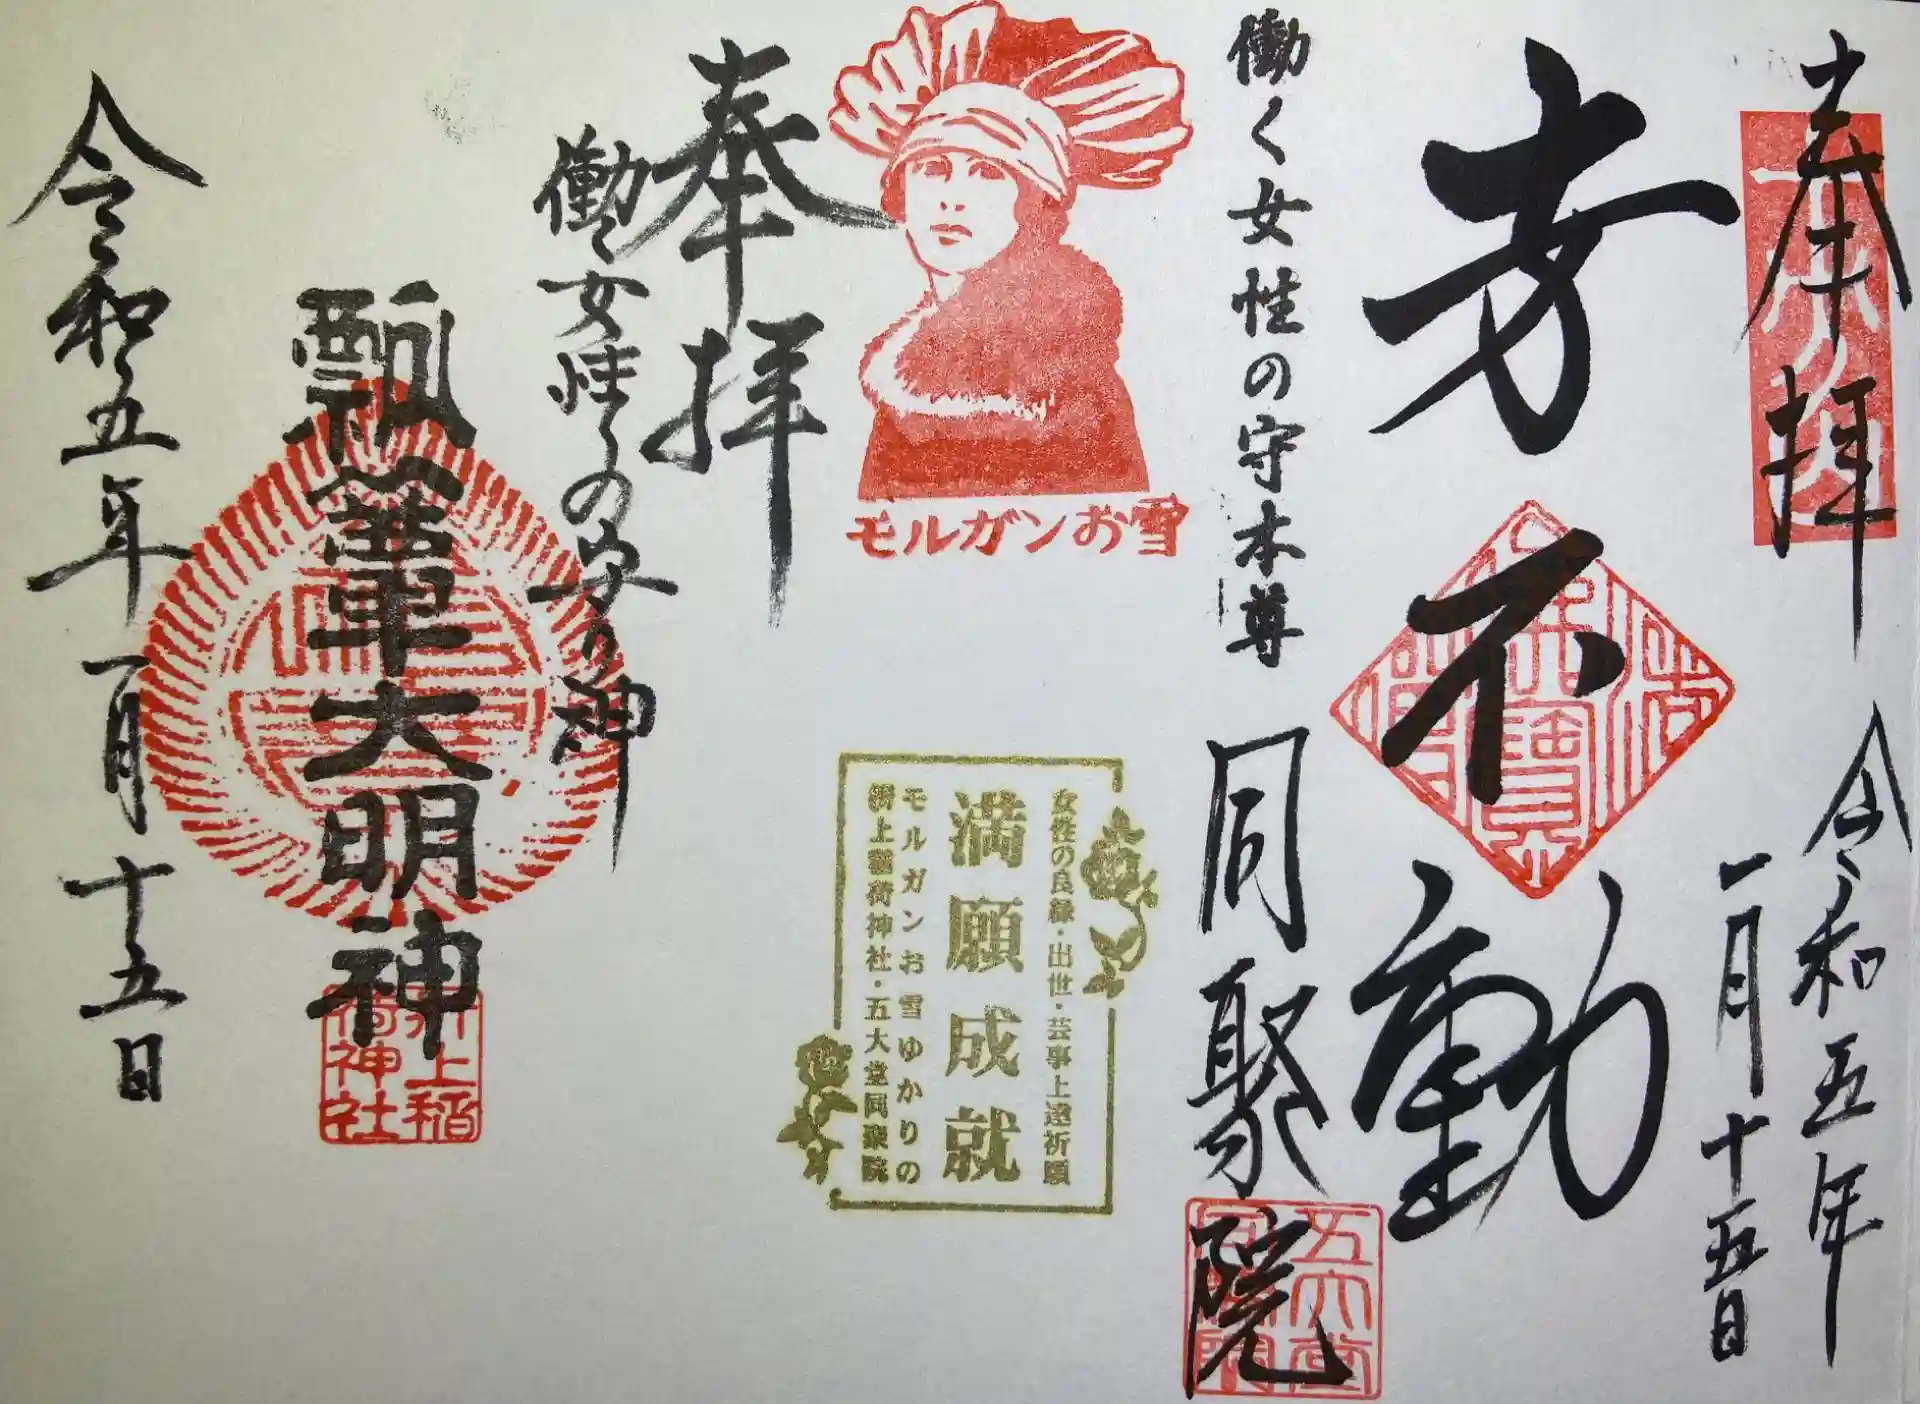 奉拝
令和五年
一月十五日
芳不動
働く女性の守本尊
同聚院
五大堂
モルガンお雪
女性の良縁・出世・芸事上達祈願
満願成就
モルガンお雪ゆかりの
折上稲荷神社・五大堂同聚院
奉拝
働く女性の守り神
瓢箪大明神
折上稲荷神社
令和五年一月十五日